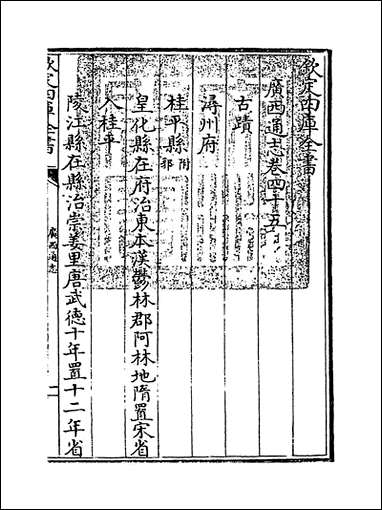 欽定四庫全書
廣西通志卷四十五
古蹟
潯州府
桂平縣附郭
皇化縣在府治東本漢鬱林郡阿林地隋置宋省
入桂平
陵江縣在縣治崇姜里唐武德十年置十二年省
欽定四庫全書
廣西通志